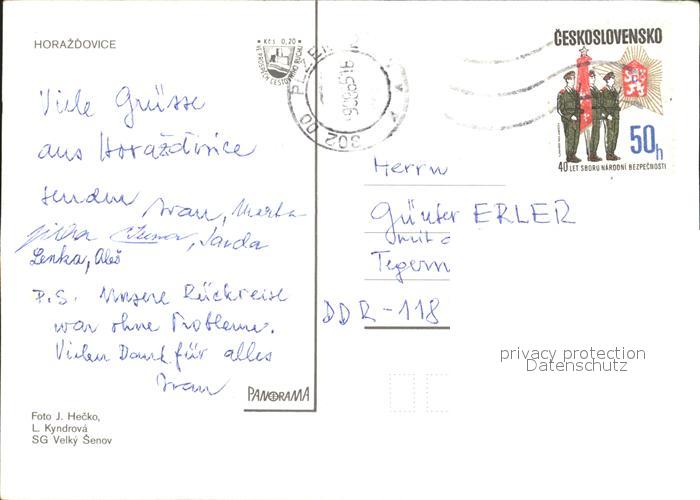 HORAŽĎOVICE
Kčs 0,20
VE PROSPĚCH CESTOVNÍHO RUCHU
302 00
ČESKOSLOVENSKO
50h
40 LET SBORU NÁRODNÍ BEZPEČNOSTI
Viele Grüsse
aus Horažďovice
senden Ivan, Marta
Jirka, Jarda
Lenka, Aleš
P.S. Unsere Rückreise
war ohne Probleme.
Vielen Dank für alles
Ivan
Herrn
Günter ERLER
Tegern
DDR-118
PANORAMA
Foto J. Hečko,
L. Kyndrová
SG Velký Šenov
privacy protection
Datenschutz